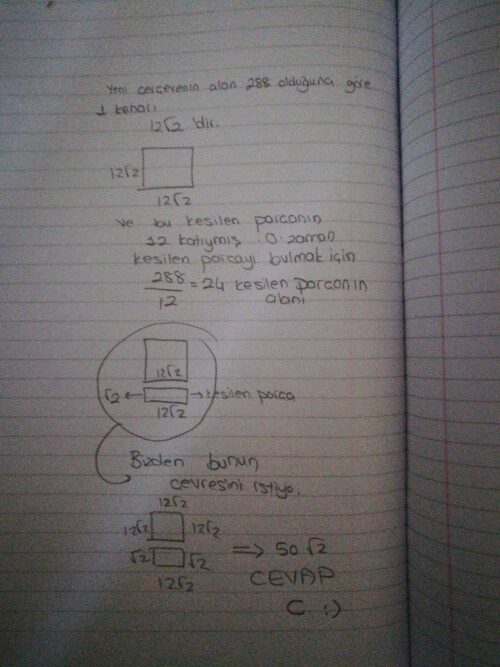 Yeni çerçevenin alan 288 olduğuna göre
1 kenarı
12√2 dir.
12√2
12√2
Ve bu kesilen parçanın
12 katıymış O zaman
kesilen parçayı bulmak için
288/12 = 24 kesilen parçanın
alanı
12√2
√2 ← → kesilen parça
12√2
Bizden bunun
çevresini istiyo.
12√2
12√2 12√2
√2 √2 ⇒ 50√2
12√2 CEVAP
C :)